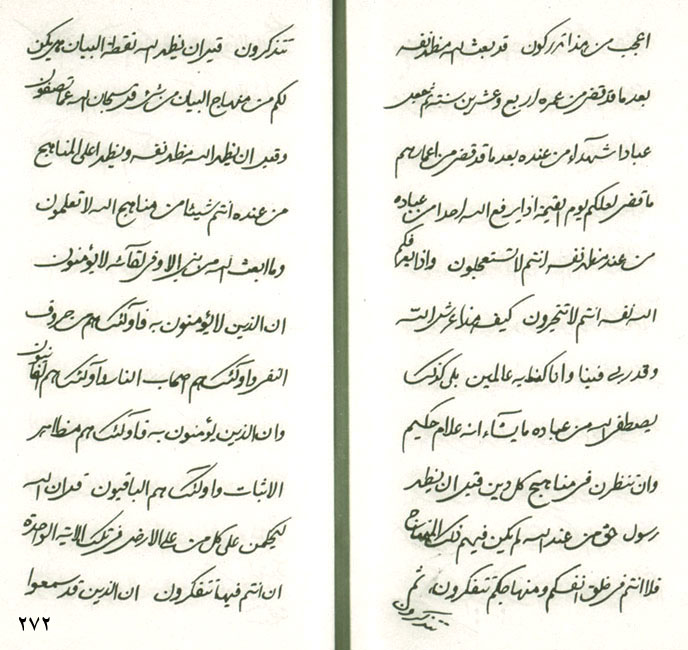 اعجب من هذا تدركون قد بعث الله مظهر نفسه
بعد ما قد قضى من عمره اربع وعشرين سنة ثم جعل
عبادا شهداء من عنده بعد ما قد قضى من اعمارهم
ما قضى لعلكم يوم القيمة اذا يرفع الله احدا من عباده
من عند مظهر نفسه انتم لا تستعجلون واذا يعرفكم
الله نفسه انتم لا تتحيرون كيف هذا عرش الله
وقد ربى فينا وانا كنا به عالمين بلى كذلك
يصطفى الله من عباده ما يشاء انه علام حكيم
وان تنظرن فى مناهيج كل دين قبل ان يظهر
رسول حق من عند الله لم يكن فيهم ذلك المنهاج
قلا انتم فى خلق انفسكم ومنهاجكم تتفكرون ثم
تتذكرون
تتذكرون قبل ان يظهر الله نقطة البيان لم يكن
لكم من منهاج البيان من شئ قد سبحان الله عما تصفون
وقبل ان يظهر الله مظهر نفسه ويظهر اعلى المناهج
من عنده انتم شيئا من مناهيج الله لا تعلمون
وما ابعث الله من نبى الا وفى لقائه لا يؤمنون
ان الذين لا يؤمنون به فاولئك هم حروف
النفى واولئك هم اصحاب النار واولئك هم لفانيون
وان الذين يؤمنون به فاولئك هم مظاهر
الاثبات واولئك هم الباقيون قد ان الله
ليحكمن على كل من على الارض فى تلك الاية الواحدة
ان انتم فيها تتفكرون ان الذين قد سمعوا
٢٧٢